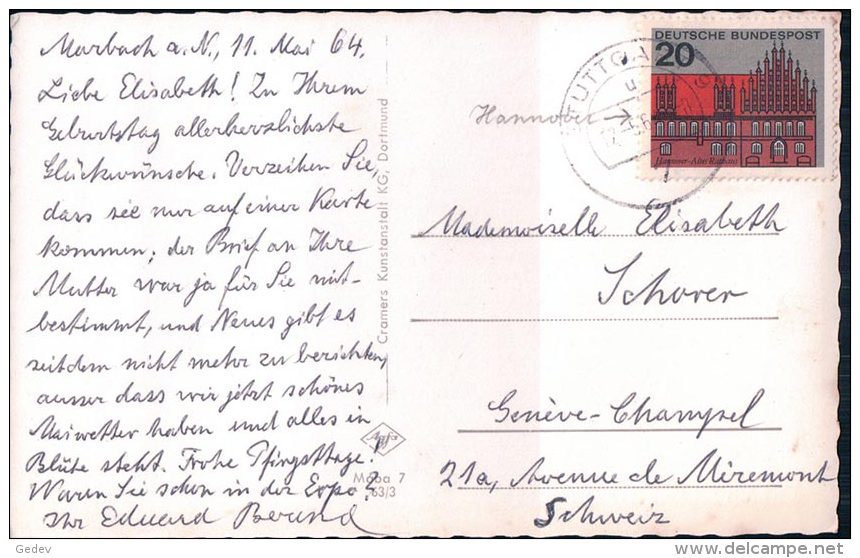 Marbach a. N., 11. Mai 64.
Liebe Elisabeth! Zu Ihrem
Geburtstag allerherzlichste
Glückwünsche. Verzeihen Sie,
dass sie nur auf einer Karte
kommen; der Brief an Ihre
Mutter war ja für Sie mit-
bestimmt, und Neues gibt es
seitdem nicht mehr zu berichten,
ausser dass wir jetzt schönes
Maiwetter haben und alles in
Blüte steht. Frohe Pfingsttage!
Waren Sie schon in der Expo?
Ihr Eduard Berend
Cramers Kunstanstalt KG, Dortmund
Agfa
Moba 7
63/3
DEUTSCHE BUNDESPOST
20
Hannover-Altes Rathaus
STUTTGA
Hannover
Mademoiselle Elisabeth
Schorer
Genève-Champel
21a, Avenue de Miremont
Schweiz
Gedev
www.delcampe.net